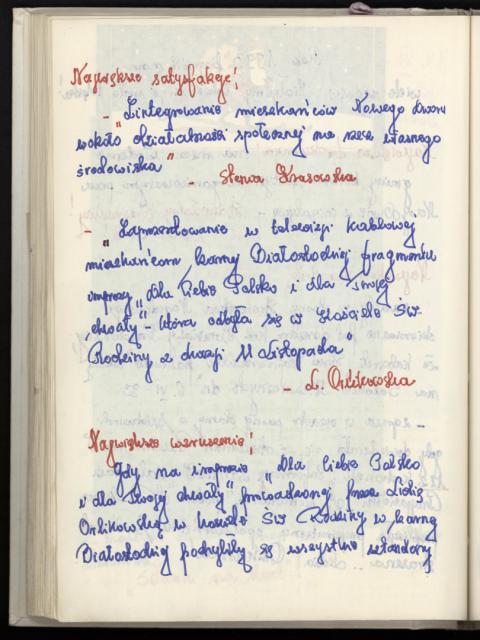 Największe satysfakcje;
- "Zintegrowanie mieszkańców Nowego Dworu
wokoło działalności społecznej na rzecz własnego
środowiska"
- Sława
- "Zaprezentowanie w telewizji kablowej
mieszkańcom Leśnej fragmentu
imprezy "Dla Ciebie Polsko i dla Twojej
chwały" - która odbyła się w kościele Św
Rodziny z okazji 11 Listopada"
- L. Orlikowska
Największe wzruszenie;
Gdy na imprezie "Dla Ciebie Polsko
i dla Twojej chwały" prowadzonej przez Lidię
Orlikowską w kościele Św Rodziny w
pochyliły się wszystkie sztandary